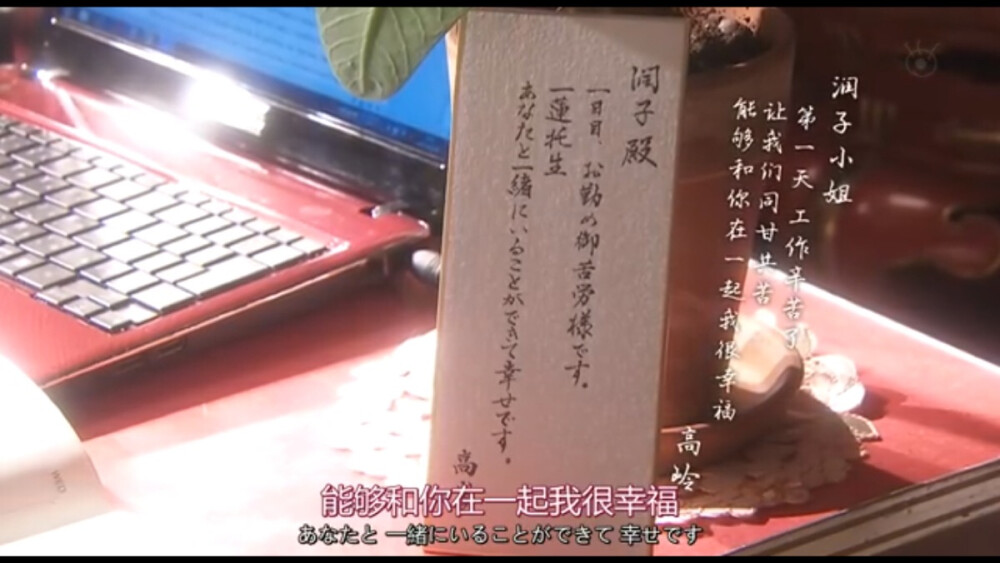 潤子殿
一日目、お勤め御苦労様です。
一蓮托生
あなたと一緒にいることができて幸せです。
高
润子小姐
第一天 工作辛苦了
让我们同甘共苦
能够和你在一起我很幸福
高岭
WED
能够和你在一起我很幸福
あなたと 一緒にいることができて 幸せです